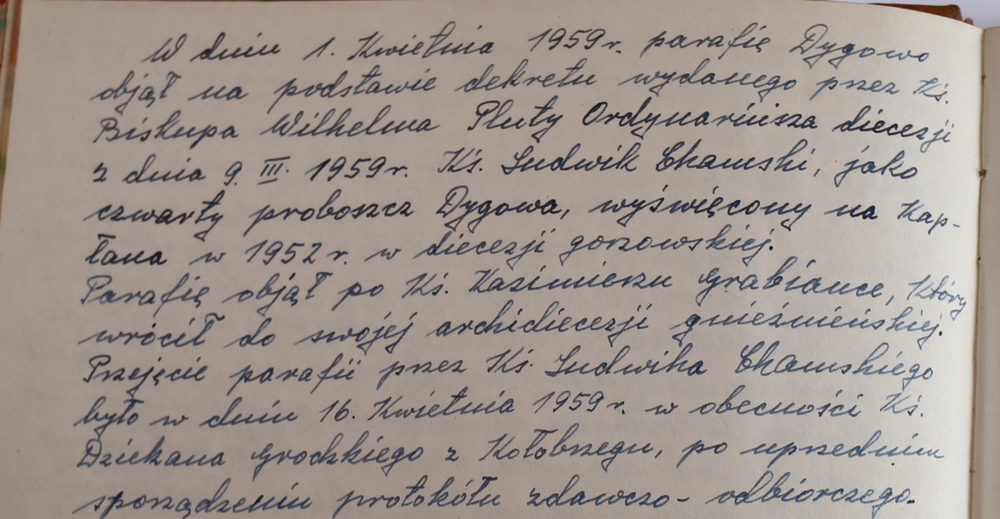 W dniu 1. Kwietnia 1959 r. parafię Dygowo
objął na podstawie dekretu wydanego przez Ks.
Biskupa Wilhelma Pluty Ordynariusza diecezji
z dnia 9. III. 1959 r. Ks. Ludwik Chamski, jako
czwarty proboszcz Dygowa, wyświęcony na Kap-
łana w 1952 r. w diecezji gorzowskiej.
Parafię objął po Ks. Kazimierzu Grabiance, Który
wrócił do swojej archidiecezji gnieźnieńskiej.
Przejęcie parafii przez Ks. Ludwika Chamskiego
było w dniu 16. Kwietnia 1959 r. w obecności Ks.
Dziekana Grodzkiego z Kołobrzegu, po uprzednim
sporządzeniu protokółu zdawczo-odbiorczego.